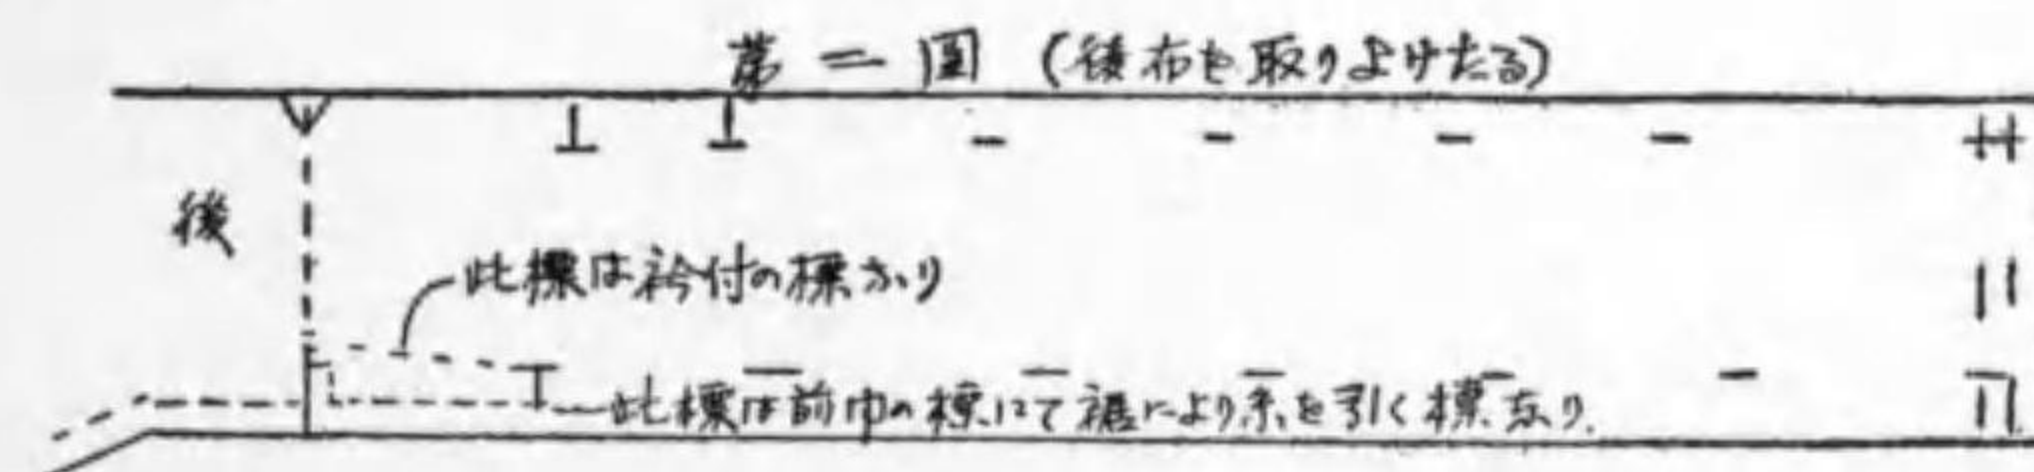 第二圖(後布を取りよけたる)
後
此標は衿付の標なり
此標は前巾の標にて裾により糸を引く標なり.